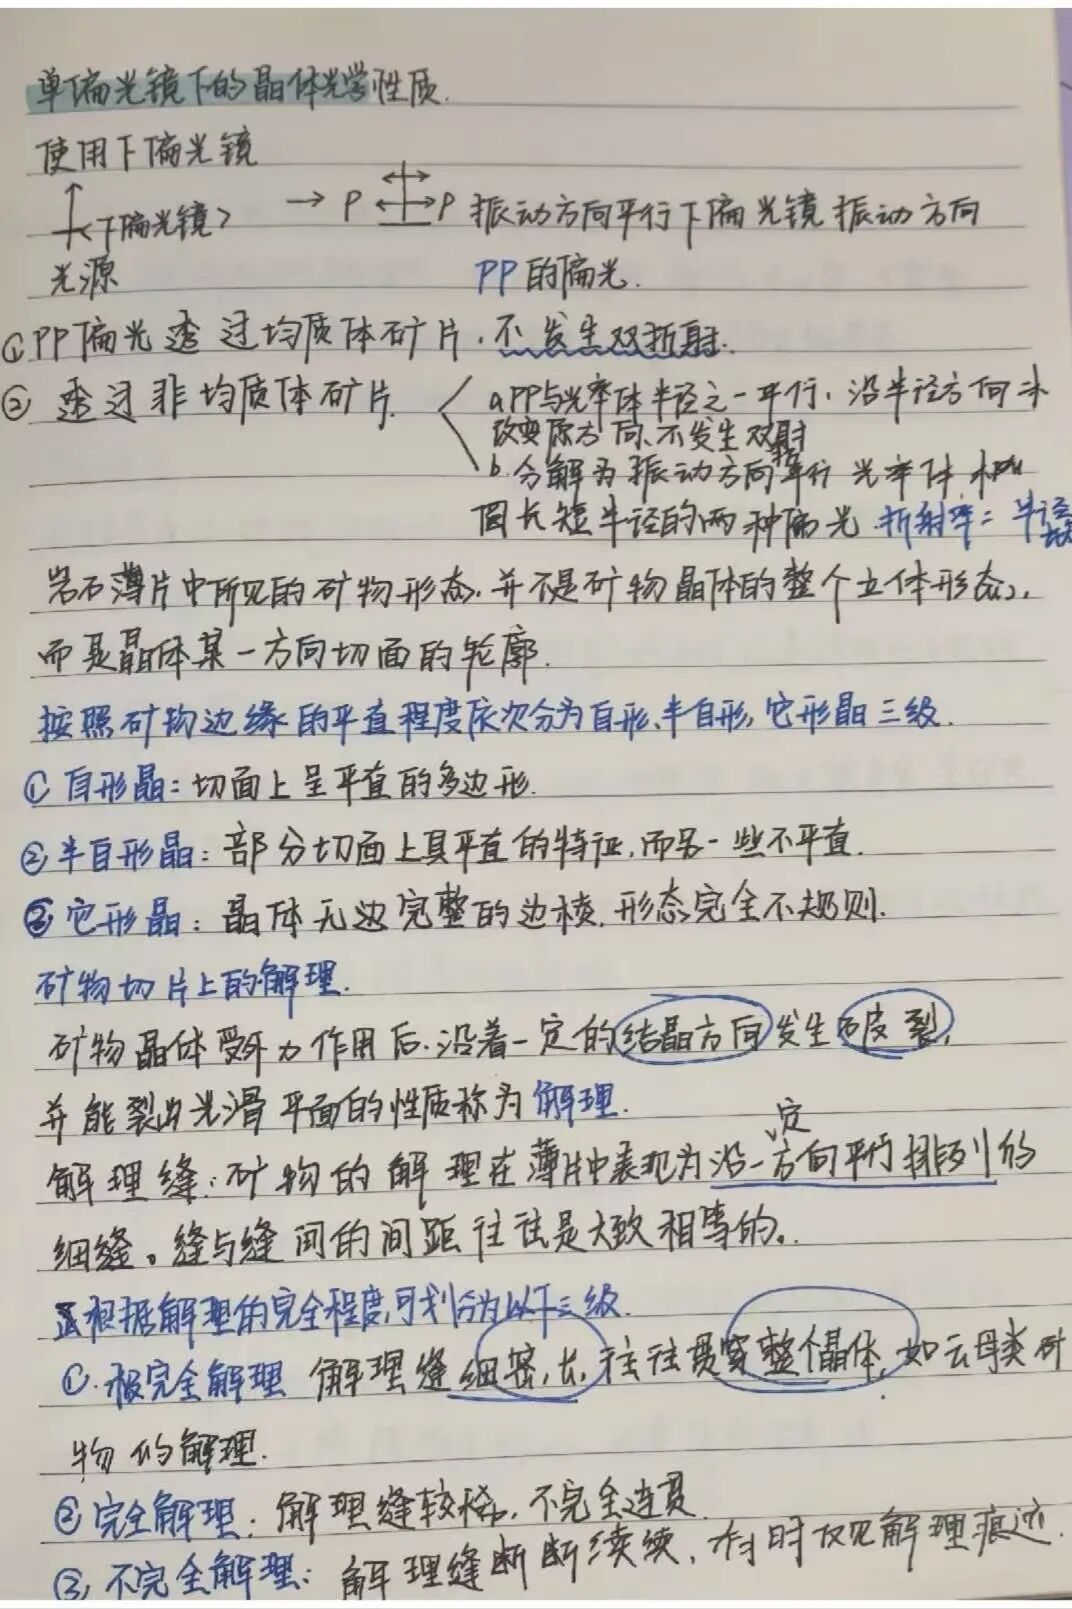 单偏光镜下的晶体光学性质.
使用下偏光镜
下偏光镜 → P P 振动方向平行下偏光镜振动方向
光源 PP的偏光.
①PP偏光透过均质体矿片.不发生双折射.
② 透过非均质体矿片. a.PP与光率体半径之一平行,沿半径方向不
改变原方向、不发生双折射
b.分解为振动方向平行光率体
圆长短半径的两种偏光 折射率=半径
岩石薄片中所见的矿物形态,并不是矿物晶体的整个立体形态,
而是晶体某一方向切面的轮廓.
按照矿物边缘的平直程度依次分为自形、半自形,它形晶三级.
① 自形晶:切面上呈平直的多边形.
②半自形晶:部分切面上具平直的特征,而另一些不平直.
③它形晶:晶体无边完整的边棱.形态完全不规则.
矿物切片上的解理.
矿物晶体受外力作用后.沿着一定的结晶方向发生破裂,
并能裂出光滑平面的性质称为解理.
解理缝:矿物的解理在薄片中表现为沿一定方向平行排列的
细缝。缝与缝间的间距往往是大致相等的。
根据解理的完全程度,可划分为以下三级.
①.极完全解理 解理缝细密,长,往往贯穿整个晶体,如云母类矿
物的解理.
②完全解理:解理缝较稀,不完全连贯
③,不完全解理:解理缝断断续续,有时仅见解理痕迹.